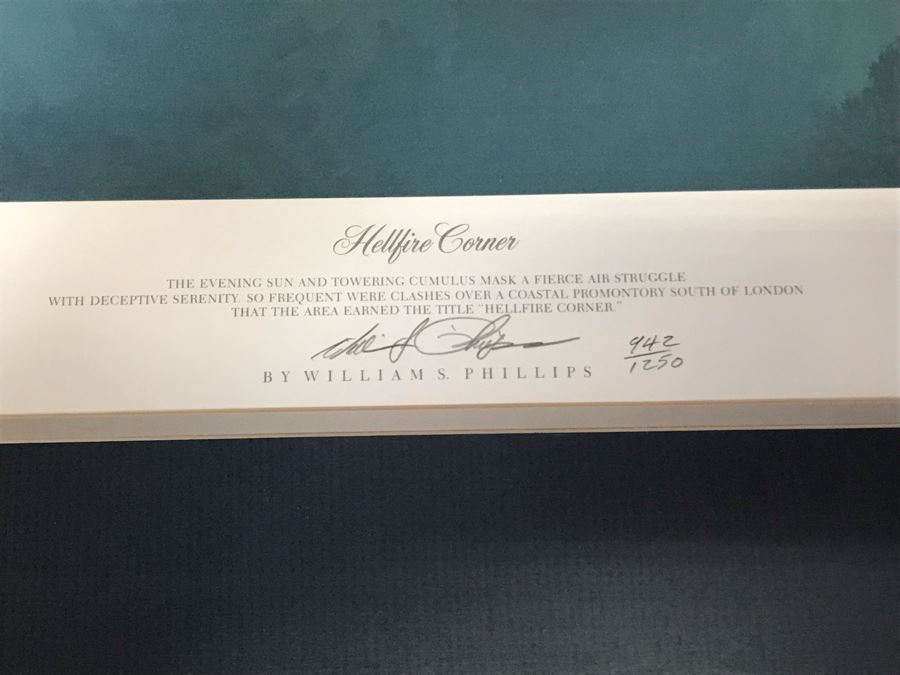 Hellfire Corner
THE EVENING SUN AND TOWERING CUMULUS MASK A FIERCE AIR STRUGGLE
WITH DECEPTIVE SERENITY. SO FREQUENT WERE CLASHES OVER A COASTAL PROMONTORY SOUTH OF LONDON
THAT THE AREA EARNED THE TITLE "HELLFIRE CORNER."
942
1250
BY WILLIAM S. PHILLIPS